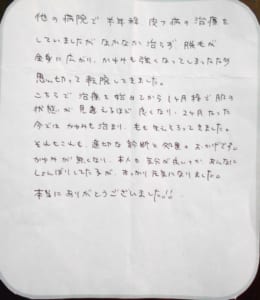 他の病院で半年程皮フ病の治療を
していましたがなかなか治らず脱毛が
全身に広がり、かゆみも強くなってしまったため
思い切って転院してきました。
こちらで治療を始めてから1ヶ月程で肌の
状態が見違えるほど良くなり、2ヶ月たった
今ではかゆみも治まり、毛も生えそろってきました。
それもこれも、適切な診断と処置のおかげです。
かゆみが無くなり、本人も気分が良いのか、あんなに
しょんぼりしてた子が、すっかり元気になりました。
本当にありがとうございました!!